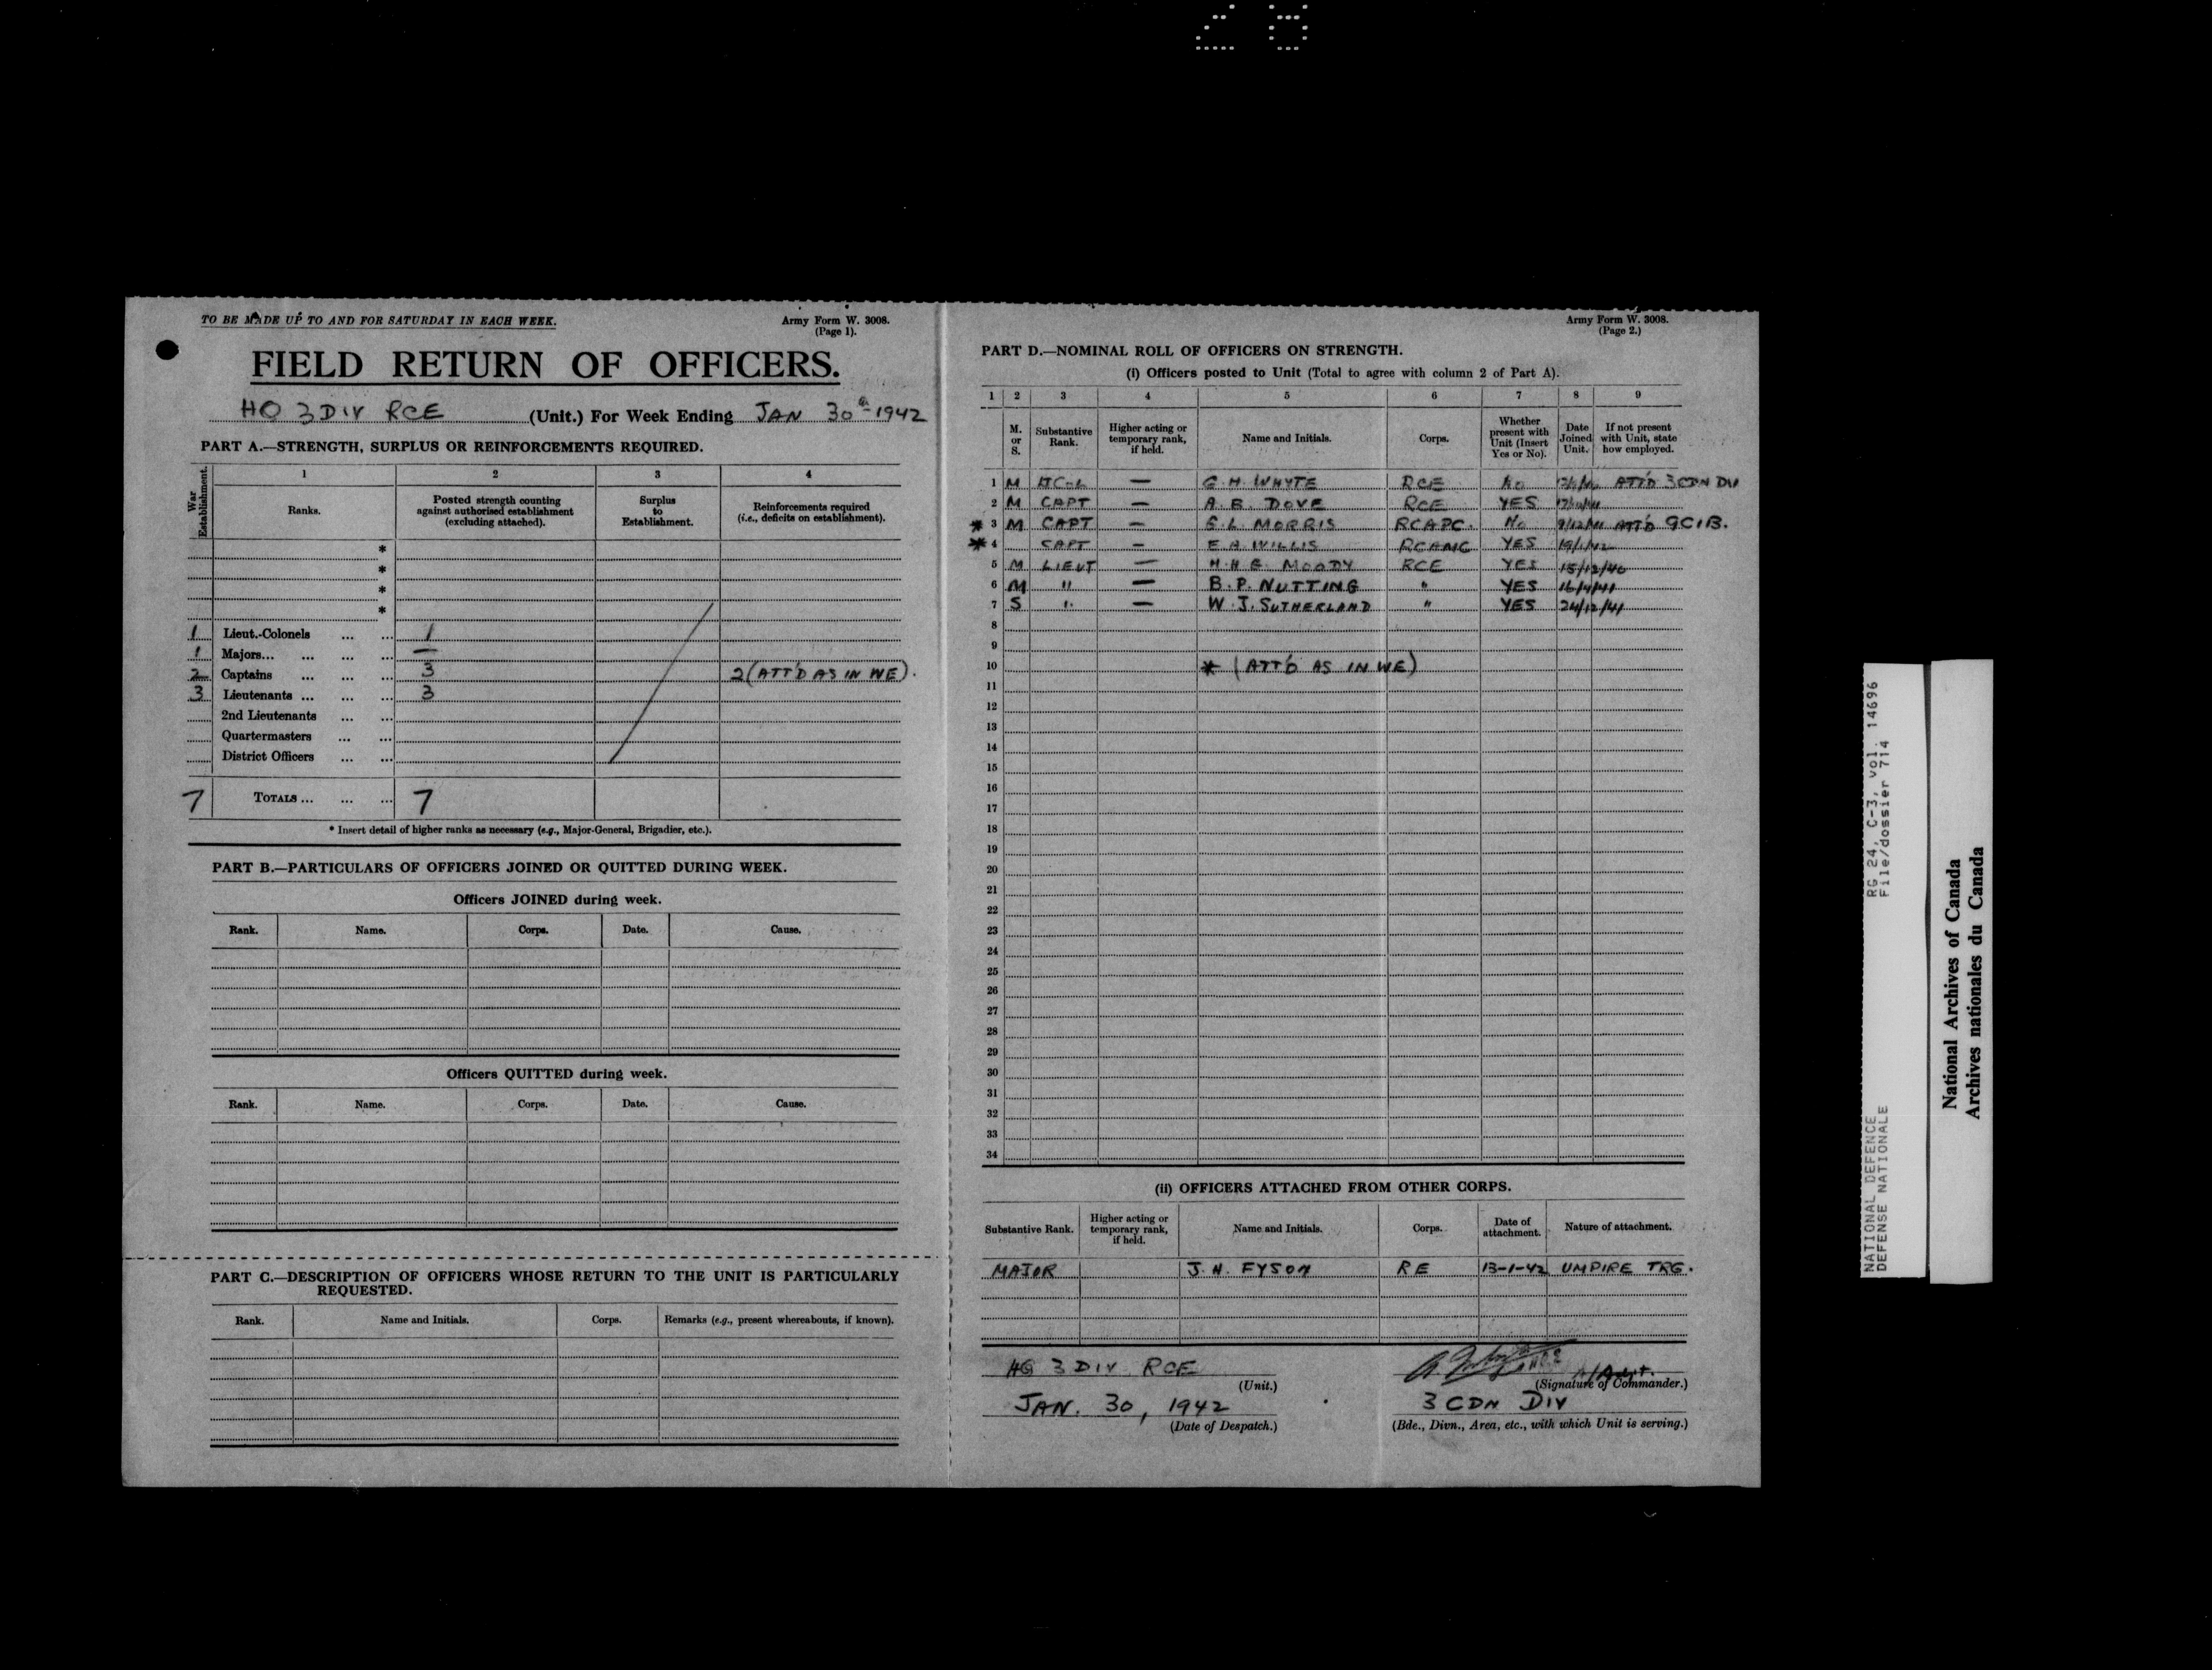 TO BE MADE UP TO AND FOR SATURDAY IN EACH WEEK.
Army Form W. 3008.
(Page 1).
FIELD RETURN OF OFFICERS.
HQ 3 DIV RCE (Unit.) For Week Ending JAN 30th 1942
PART A.—STRENGTH, SURPLUS OR REINFORCEMENTS REQUIRED.
War Establishment.
1 2 3 4
Ranks. Posted strength counting against authorised establishment (excluding attached). Surplus to Establishment. Reinforcements required (i.e., deficits on establishment).
*
*
*
*
1 Lieut.-Colonels ... ... 1
1 Majors... ... ... ... —
2 Captains ... ... ... 3 2 (ATT'D AS IN WE).
3 Lieutenants ... ... ... 3
2nd Lieutenants ... ...
Quartermasters ... ...
District Officers ... ...
7 TOTALS ... ... ... 7
* Insert detail of higher ranks as necessary (e.g., Major-General, Brigadier, etc.).
PART B.—PARTICULARS OF OFFICERS JOINED OR QUITTED DURING WEEK.
Officers JOINED during week.
Rank. Name. Corps. Date. Cause.
Officers QUITTED during week.
Rank. Name. Corps. Date. Cause.
PART C.—DESCRIPTION OF OFFICERS WHOSE RETURN TO THE UNIT IS PARTICULARLY
REQUESTED.
Rank. Name and Initials. Corps. Remarks (e.g., present whereabouts, if known).
Army Form W. 3008.
(Page 2.)
PART D.—NOMINAL ROLL OF OFFICERS ON STRENGTH.
(i) Officers posted to Unit (Total to agree with column 2 of Part A).
1 2 3 4 5 6 7 8 9
M. or S. Substantive Rank. Higher acting or temporary rank, if held. Name and Initials. Corps. Whether present with Unit (Insert Yes or No). Date Joined Unit. If not present with Unit, state how employed.
1 M — G. H. WHYTE RCE No ATT'D 3 CDN DIV
2 M CAPT — A. B. DOVE RCE YES
* 3 M CAPT — MORRIS RCAPC. No 9/12/41 ATT'D
* 4 CAPT — E. A. WILLIS RCAMC YES 19/1/42
5 M LIEUT — MOODY RCE YES 15/12/40
6 M " — B. P. NUTTING " YES 16/9/41
7 S " — W. J. SUTHERLAND " YES 24/12/41
8
9
10 * (ATT'D AS IN WE)
11
12
13
14
15
16
17
18
19
20
21
22
23
24
25
26
27
28
29
30
31
32
33
34
(ii) OFFICERS ATTACHED FROM OTHER CORPS.
Substantive Rank. Higher acting or temporary rank, if held. Name and Initials. Corps. Date of attachment. Nature of attachment.
MAJOR J. H. FYSON RE 13-1-42 UMPIRE TRG.
HQ 3 DIV RCE
(Unit.)
A/Adjt.
(Signature of Commander.)
JAN. 30, 1942
(Date of Despatch.)
3 CDN DIV
(Bde., Divn., Area, etc., with which Unit is serving.)
NATIONAL DEFENCE RG 24, C-3, vol. 14696
DEFENSE NATIONALE File/dossier 714
National Archives of Canada
Archives nationales du Canada